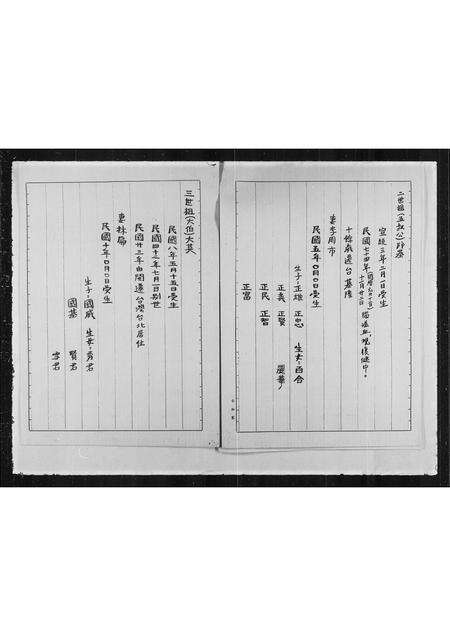 二世祖(五叔公)阿添
宣統三年二月八日受生
民國七十四年(國曆 十二月廿二日)腦溢血,現復健中。
十餘歲遷台基隆
妻李周市
民國五年0月0日受生
生子:正雄 正忠 生女:西合
正義 正賢 麗華
正民 正智
正富
三世祖(大伯)大英
民國八年五月十五日受生
民國四十一年七月一日別世
民國廿三年由閩遷台灣台北居住
妻林局
民國十年0月0日受生
生子:國威 生女:秀君
國基 賢君
雪君